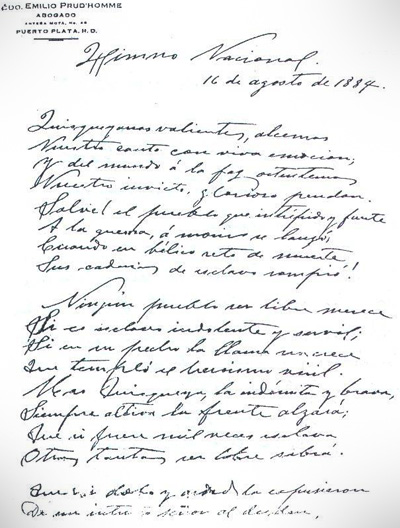 LCDO. EMILIO PRUD'HOMME
ABOGADO
PUERTO PLATA, R.D.
Himno Nacional.
16 de agosto de 1884.
Quisqueyanos valientes, alcemos
Nuestro canto con viva emocion;
Y del mundo á la faz ostentemos
Nuestro invicto, glorioso pendon.
Salve! el pueblo que intrépido y fuerte
A la guerra, á morir se lanzó;
Cuando en bélico reto de muerte
Sus cadenas de esclavo rompió!
Ningún pueblo ser libre merece
Si es esclavo indolente y servil;
Si en su pecho la llama no crece
Que templó el heroismo viril.
Mas Quisqueya, la indómita y brava,
Siempre altiva la frente alzará;
Que si fuere mil veces esclava
Otras tantas ser libre sabrá.
Que si dolo y ardid la expusieron
De un intruso señor al desdén,